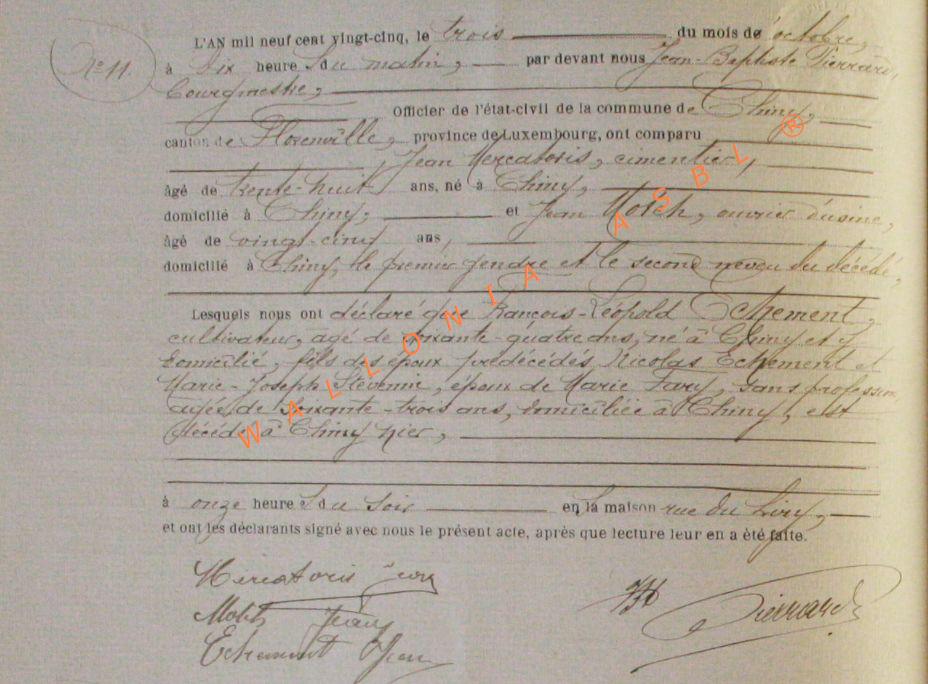 N° 11.
L'AN mil neuf cent vingt-cinq, le trois du mois de octobre,
à Dix heure S du matin, par devant nous Jean-Baptiste Pierrard,
Bourgmestre,
Officier de l'état-civil de la commune de Chiny,
canton de Florenville, province de Luxembourg, ont comparu
Jean Mercatoris, cimentier,
âgé de trente-huit ans, né à Chiny,
domicilié à Chiny, et Jean , ouvrier d'usine,
âgé de vingt-cinq ans,
domicilié à Chiny, le premier gendre et le second neveu du décédé,
Lesquels nous ont déclaré que François-Léopold Echement,
cultivateur, âgé de soixante-quatre ans, né à Chiny et y
domicilié, fils des époux prédécédés Nicolas Echement et
Marie-Joseph Stévenin, époux de Marie , sans profession
âgée de soixante-trois ans, domiciliée à Chiny, est
décédé à Chiny hier,
à onze heure S du soir en la maison rue du
et ont les déclarants signé avec nous le présent acte, après que lecture leur en a été faite.
Mercatoris Jean
Jean
Echement Jean
Pierrard
WALLONIA ASBL ®